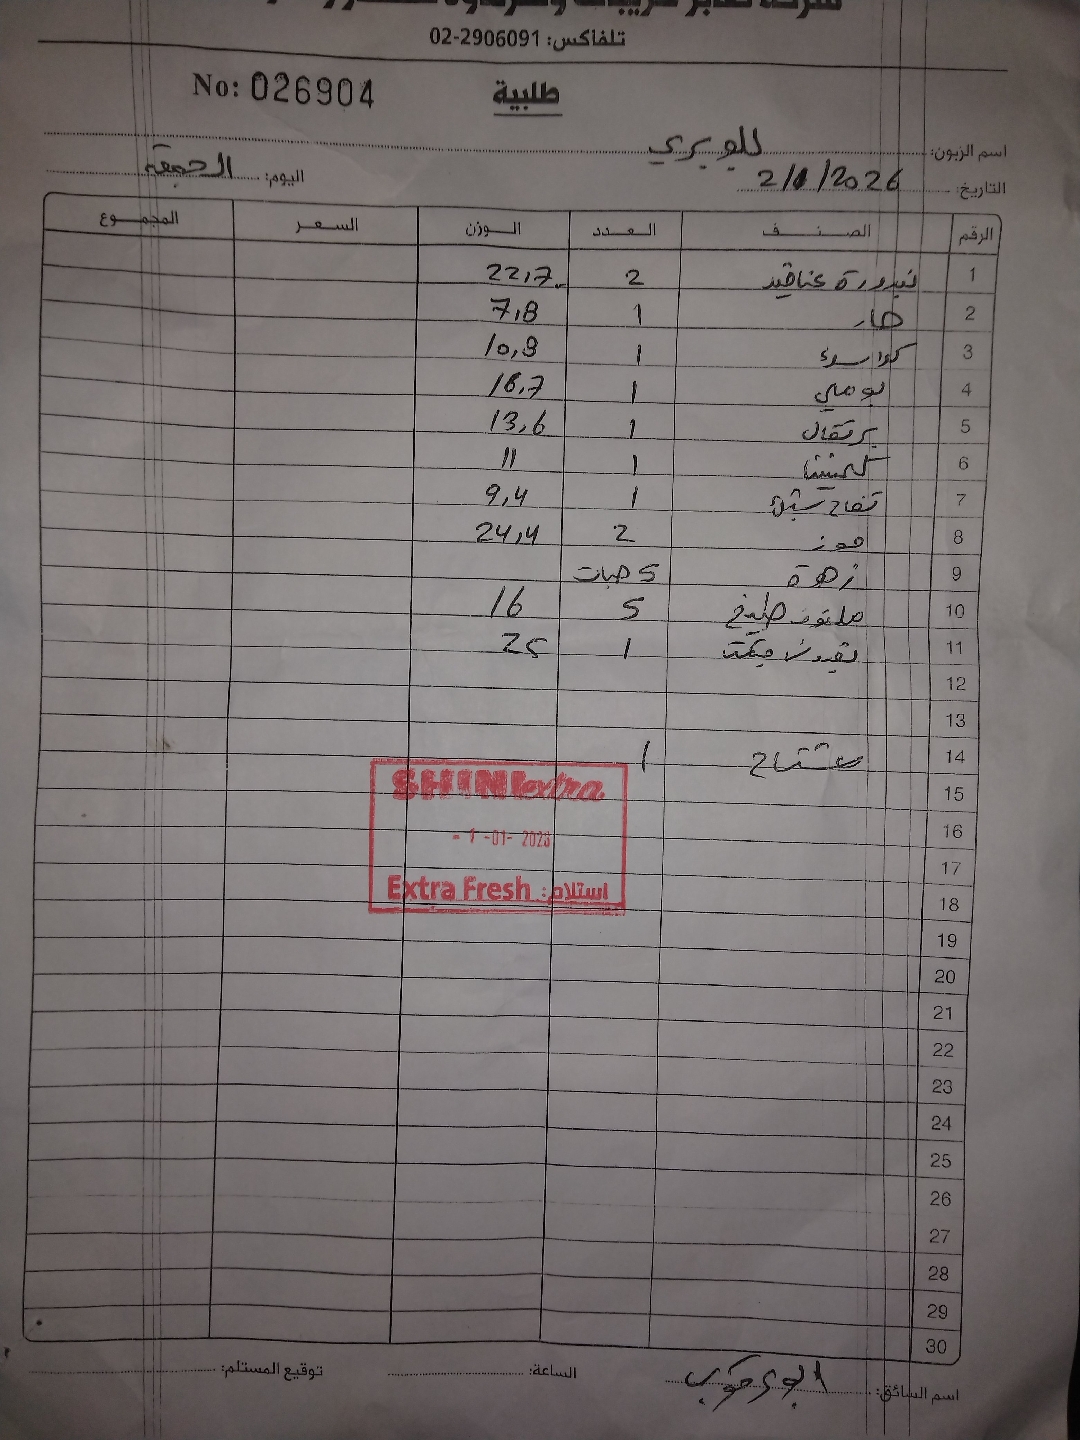 تلفاكس: 02-2906091
No: 026904
طلبية
اسم الزبون: للوبري
التاريخ: 2/1/2026 اليوم: الجمعة
الرقم الصنف العدد الوزن السعر المجموع
1 بندورة عناقيد 2 22,7
2 حار 1 7,8
3 1 10,9
4 بوملي 1 16,7
5 برتقال 1 13,6
6 كلمنتينا 1 11
7 تفاح 1 9,4
8 موز 2 24,4
9 زهرة 5 حبات
10 5 16
11 1 25
12
13
14 1
15
16
17
18
19
20
21
22
23
24
25
26
27
28
29
30
SHINI extra
Extra Fresh استلام:
اسم السائق: الساعة: توقيع المستلم: